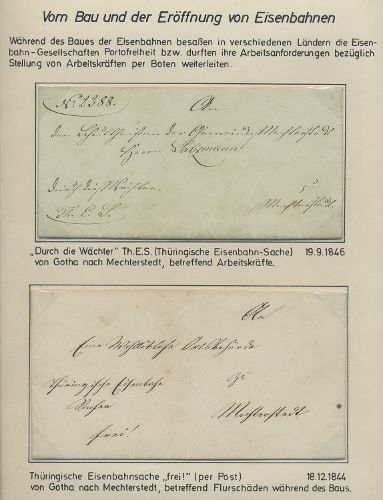 Vom Bau und der Eröffnung von Eisenbahnen
Während des Baues der Eisenbahnen besaßen in verschiedenen Ländern die Eisen-
bahn-Gesellschaften Portofreiheit bzw. durften ihre Arbeitsanforderungen bezüglich
Stellung von Arbeitskräften per Boten weiterleiten.
No 2388.
An
den Schultheißen der Gemeinde Mechterstedt
Herrn
durch die Wächter.
zu
Th. E. S.
Mechterstedt.
„Durch die Wächter" Th.E.S. (Thüringische Eisenbahn-Sache) 19.9.1846
von Gotha nach Mechterstedt, betreffend Arbeitskräfte.
An
Eine Wohllöbliche Ortsbehörde
Thüringische Eisenbahn
zu
Sachen
Mechterstedt
frei!
Thüringische Eisenbahnsache „frei!" (per Post) 18.12.1844
von Gotha nach Mechterstedt, betreffend Flurschäden während des Baus.